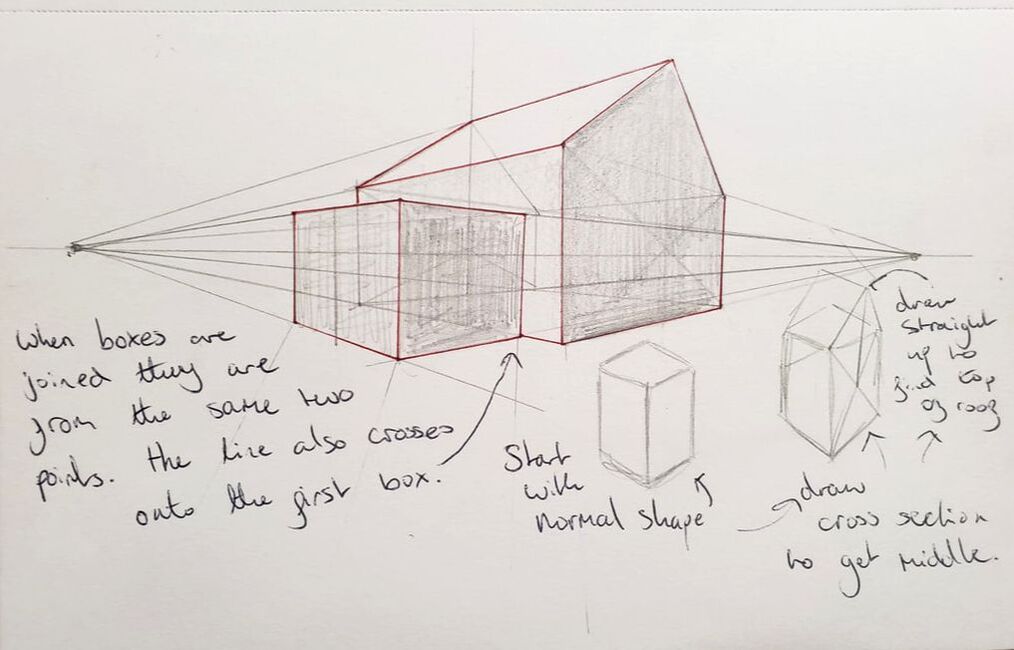 when boxes are
joined they are
from the same two
points. the line also crosses
onto the first box.
Start
with
normal shape
draw
cross section
to get middle.
draw
straight
up to
find top
of roof